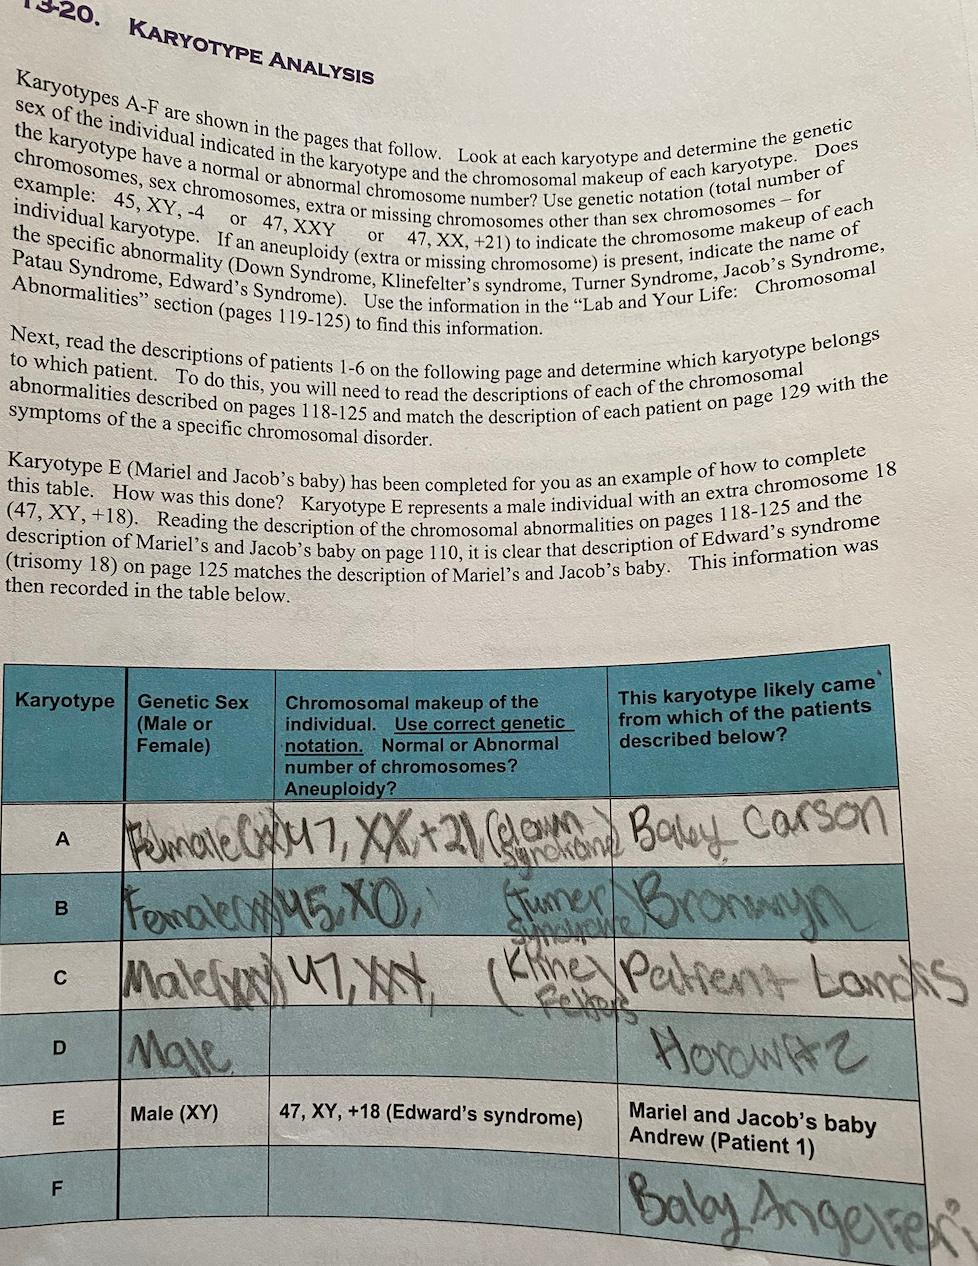 13-20. KARYOTYPE ANALYSIS
Karyotypes A-F are shown in the pages that follow. Look at each karyotype and determine the genetic
sex of the individual indicated in the karyotype and the chromosomal makeup of each karyotype. Does
the karyotype have a normal or abnormal chromosome number? Use genetic notation (total number of
chromosomes, sex chromosomes, extra or missing chromosomes other than sex chromosomes – for
example: 45, XY, -4 or 47, XXY or 47, XX, +21) to indicate the chromosome makeup of each
individual karyotype. If an aneuploidy (extra or missing chromosome) is present, indicate the name of
the specific abnormality (Down Syndrome, Klinefelter's syndrome, Turner Syndrome, Jacob's Syndrome,
Patau Syndrome, Edward's Syndrome). Use the information in the "Lab and Your Life: Chromosomal
Abnormalities" section (pages 119-125) to find this information.
Next, read the descriptions of patients 1-6 on the following page and determine which karyotype belongs
to which patient. To do this, you will need to read the descriptions of each of the chromosomal
abnormalities described on pages 118-125 and match the description of each patient on page 129 with the
symptoms of the a specific chromosomal disorder.
Karyotype E (Mariel and Jacob's baby) has been completed for you as an example of how to complete
this table. How was this done? Karyotype E represents a male individual with an extra chromosome 18
(47, XY, +18). Reading the description of the chromosomal abnormalities on pages 118-125 and the
description of Mariel's and Jacob's baby on page 110, it is clear that description of Edward's syndrome
(trisomy 18) on page 125 matches the description of Mariel's and Jacob's baby. This information was
then recorded in the table below.
Karyotype
Genetic Sex
(Male or
Female)
Chromosomal makeup of the
individual. Use correct genetic
notation. Normal or Abnormal
number of chromosomes?
Aneuploidy?
This karyotype likely came
from which of the patients
described below?
A
Female(XX)
47, XX,+21 (down
syndrome)
Baby Carson
B
Female
45,XO,
(Turner
syndrome)
Bronwyn
C
Male
47,
(Kline
Felters
Patient Landis
D
Male
Horowitz
E
Male (XY)
47, XY, +18 (Edward's syndrome)
Mariel and Jacob's baby
Andrew (Patient 1)
F
Baby